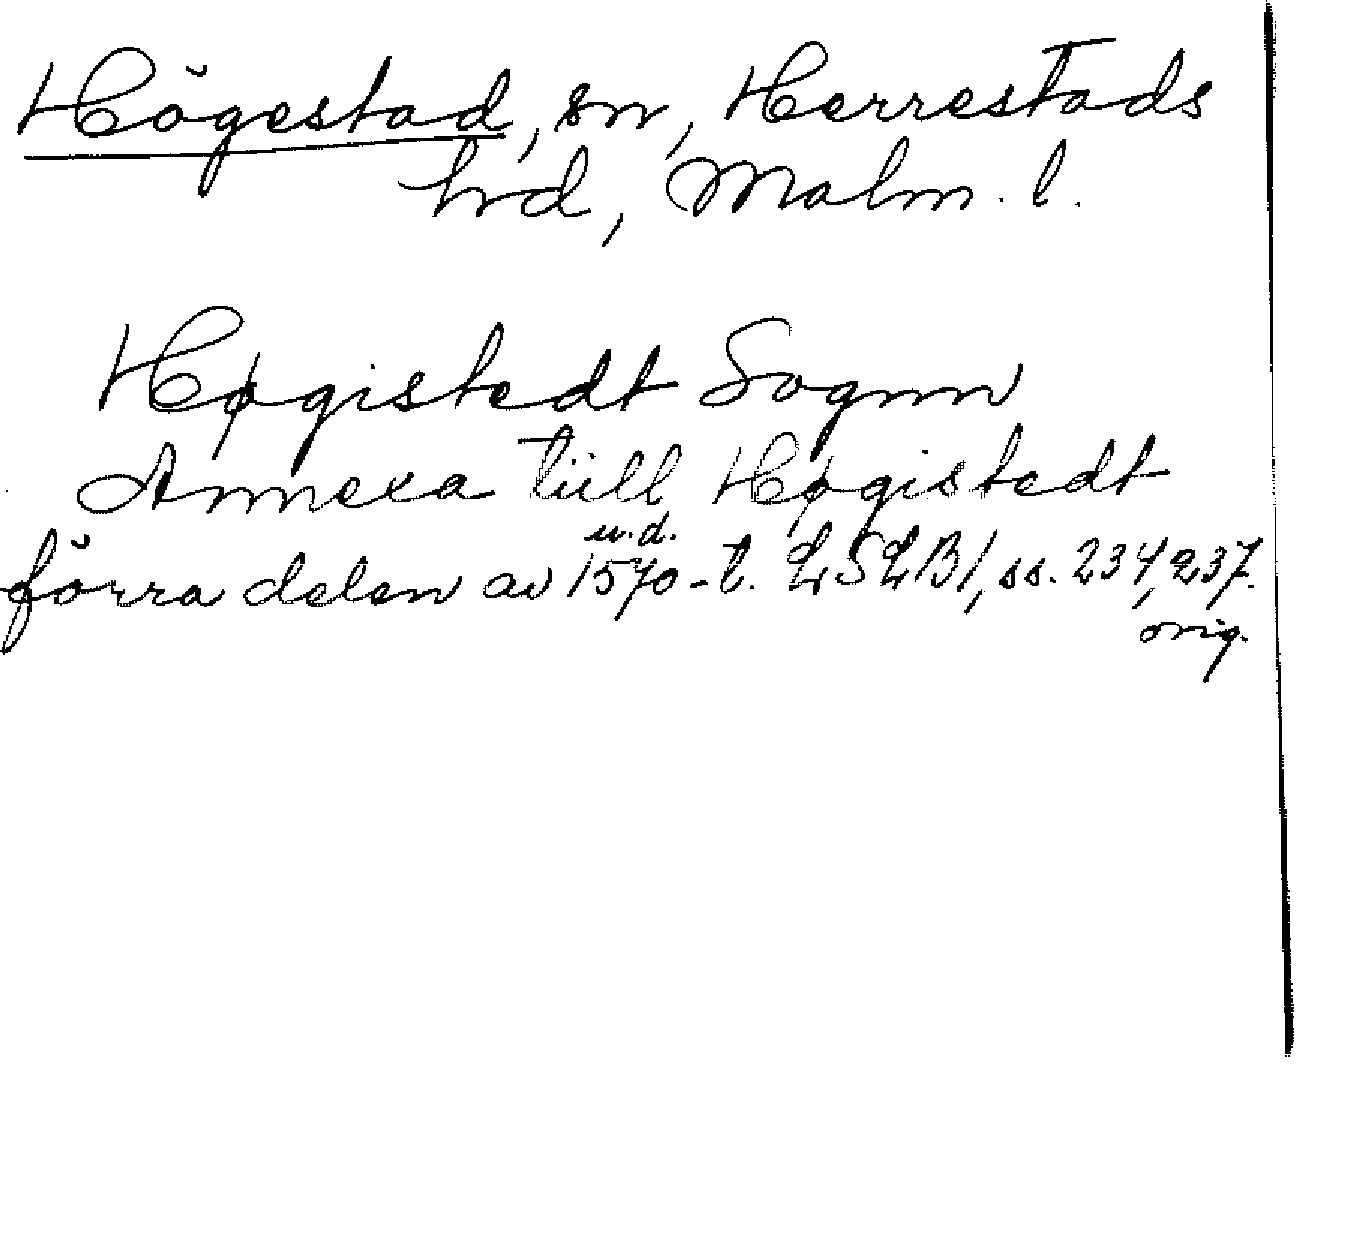 Högestad, sn, Herrestads
hrd, Malm. l.
Høgistedt Sognn
Annexa tiill Høgistedt
u.d.
förra delen av 1570-t. LSLB1, ss. 234, 237.
orig.